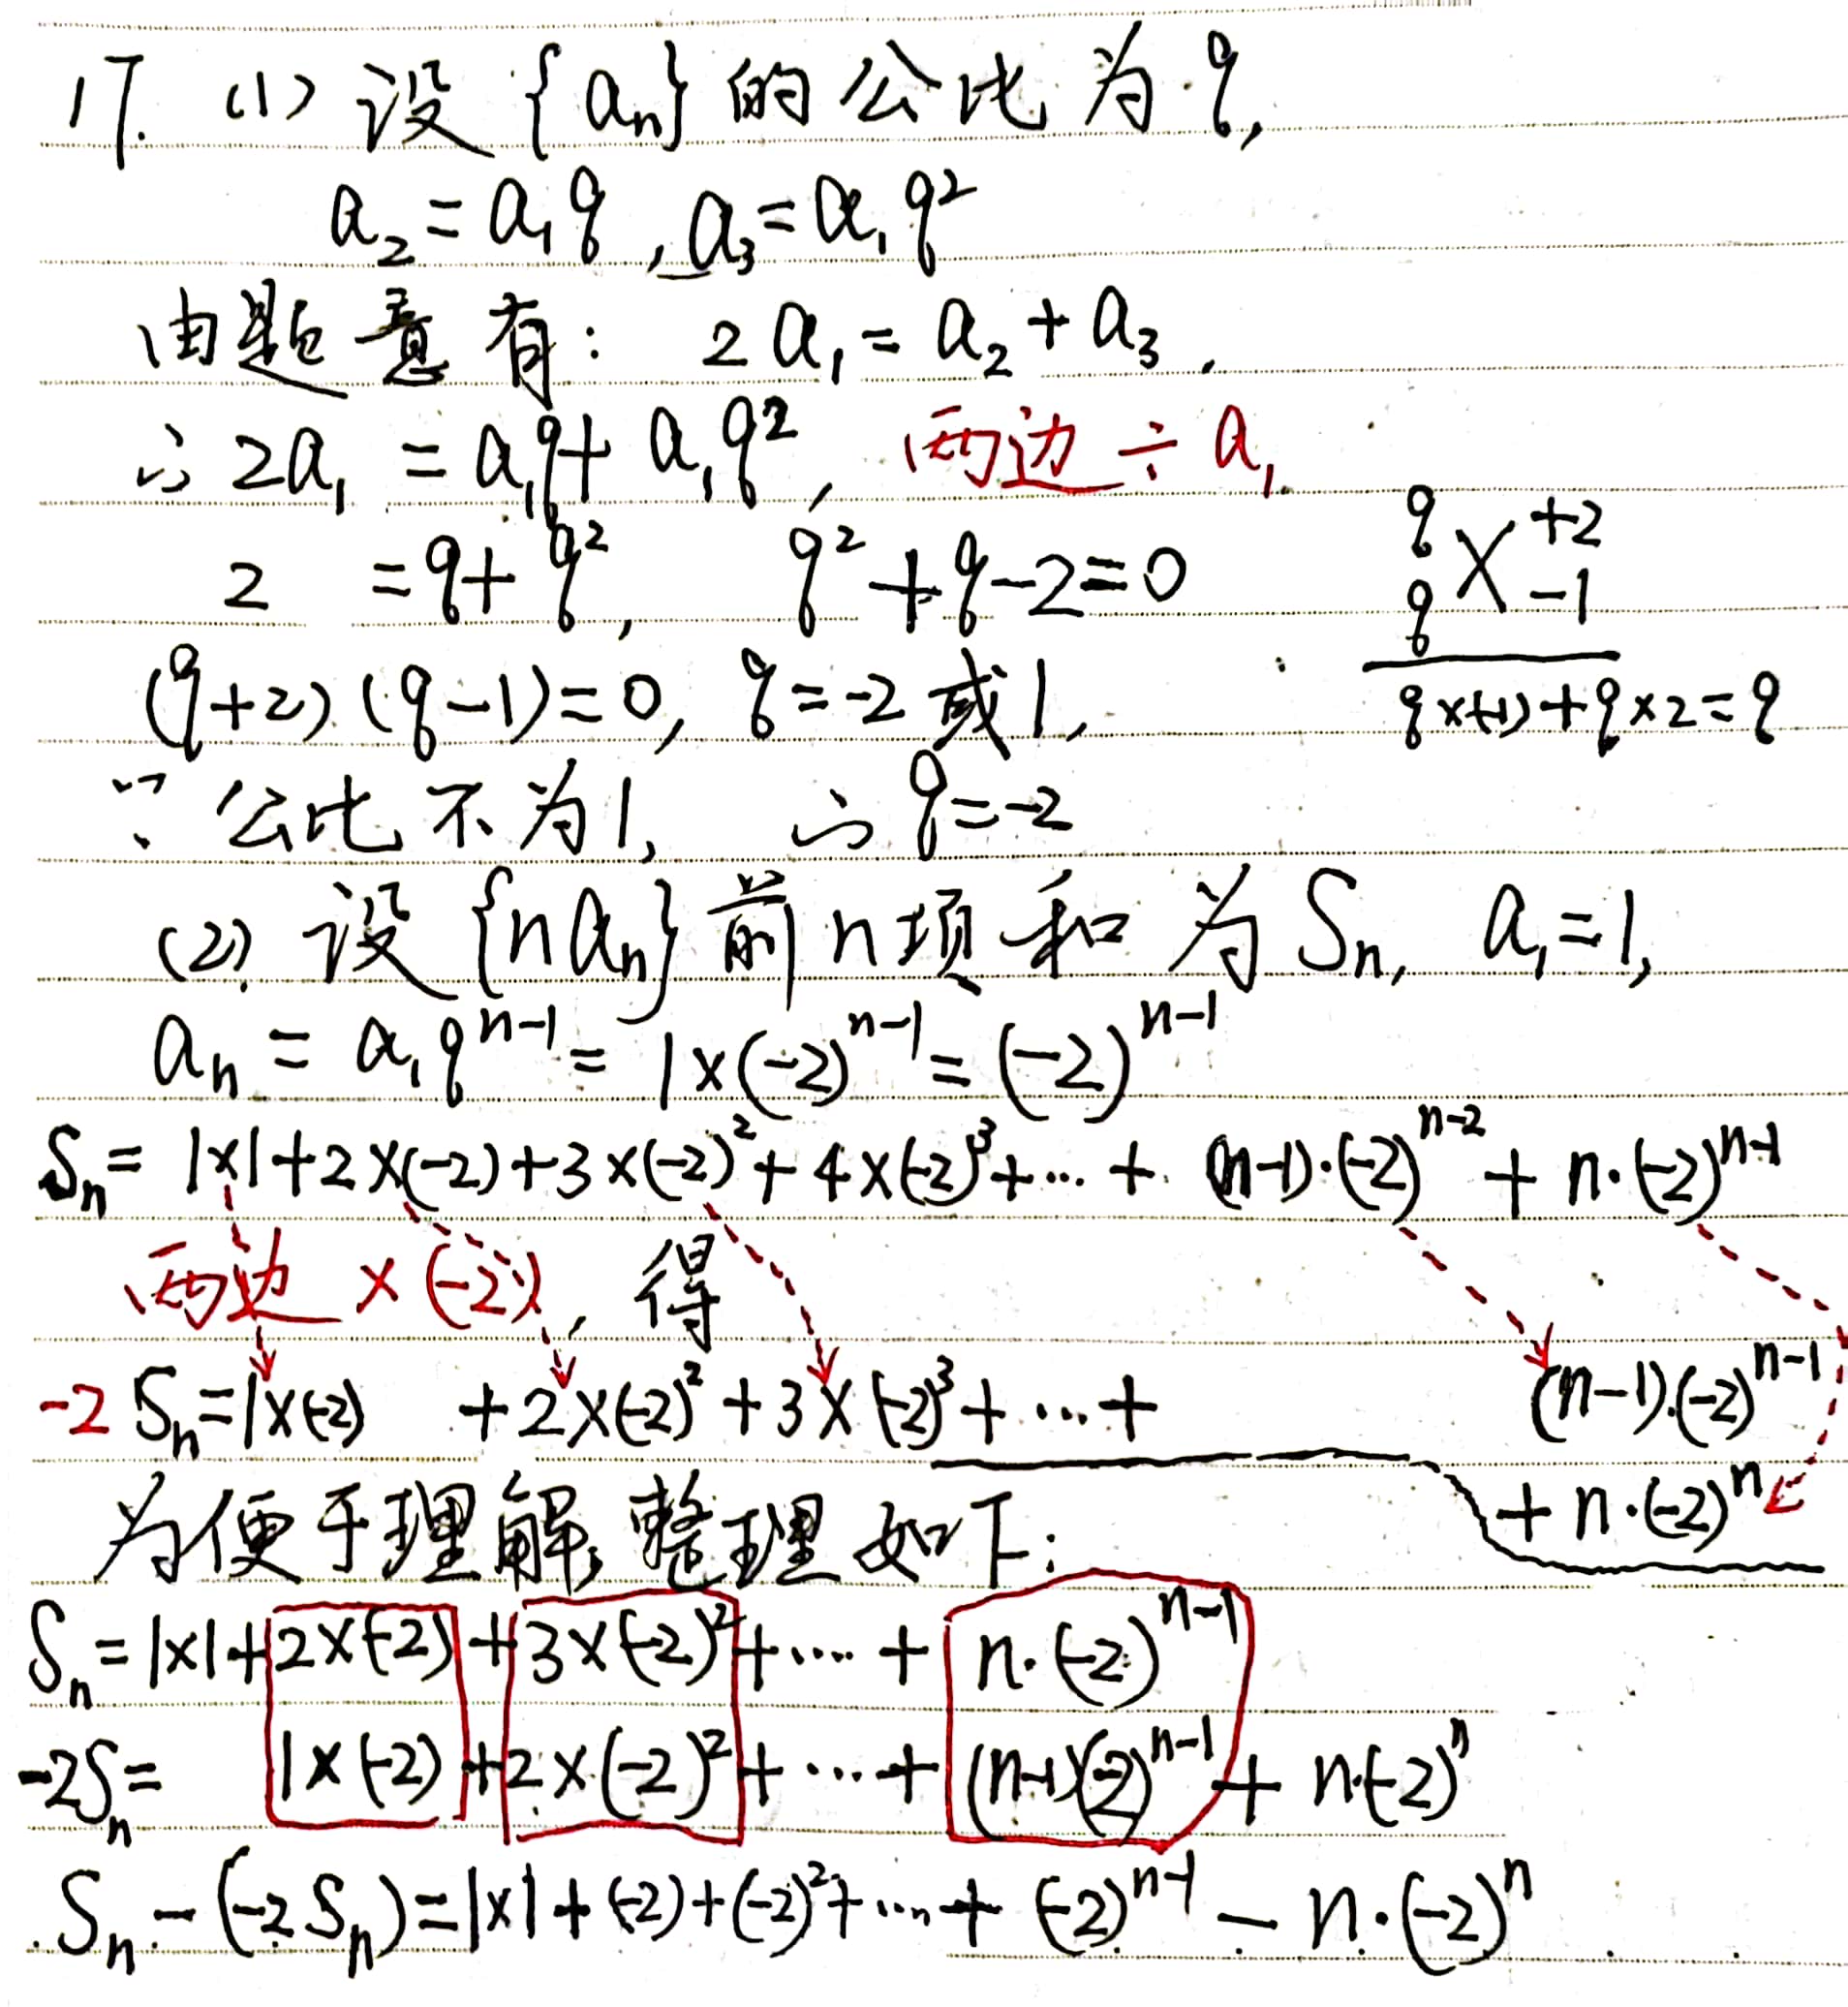 17. (1) 设{aₙ}的公比为q,
a₂=a₁q, a₃=a₁q²
由题意有: 2a₁=a₂+a₃.
∴2a₁=a₁q+a₁q², 两边÷a₁.
2 =q+q², q²+q-2=0
q +2
×
q -1
(q+2)(q-1)=0, q=-2或1,
q×(-1)+q×2=q
∵公比不为1, ∴q=-2
(2) 设{naₙ}前n项和为Sₙ, a₁=1,
aₙ=a₁qⁿ⁻¹=1×(-2)ⁿ⁻¹=(-2)ⁿ⁻¹
Sₙ=1×1+2×(-2)+3×(-2)²+4×(-2)³+…+(n-1)·(-2)ⁿ⁻²+n·(-2)ⁿ⁻¹
两边×(-2), 得
-2Sₙ=1×(-2) +2×(-2)²+3×(-2)³+…+ (n-1)·(-2)ⁿ⁻¹
+n·(-2)ⁿ
为便于理解,整理如下:
Sₙ=1×1+2×(-2)+3×(-2)²+…+n·(-2)ⁿ⁻¹
-2Sₙ= 1×(-2)+2×(-2)²+…+(n-1)(-2)ⁿ⁻¹+n·(-2)ⁿ
Sₙ-(-2Sₙ)=1×1+(-2)+(-2)²+…+(-2)ⁿ⁻¹-n·(-2)ⁿ